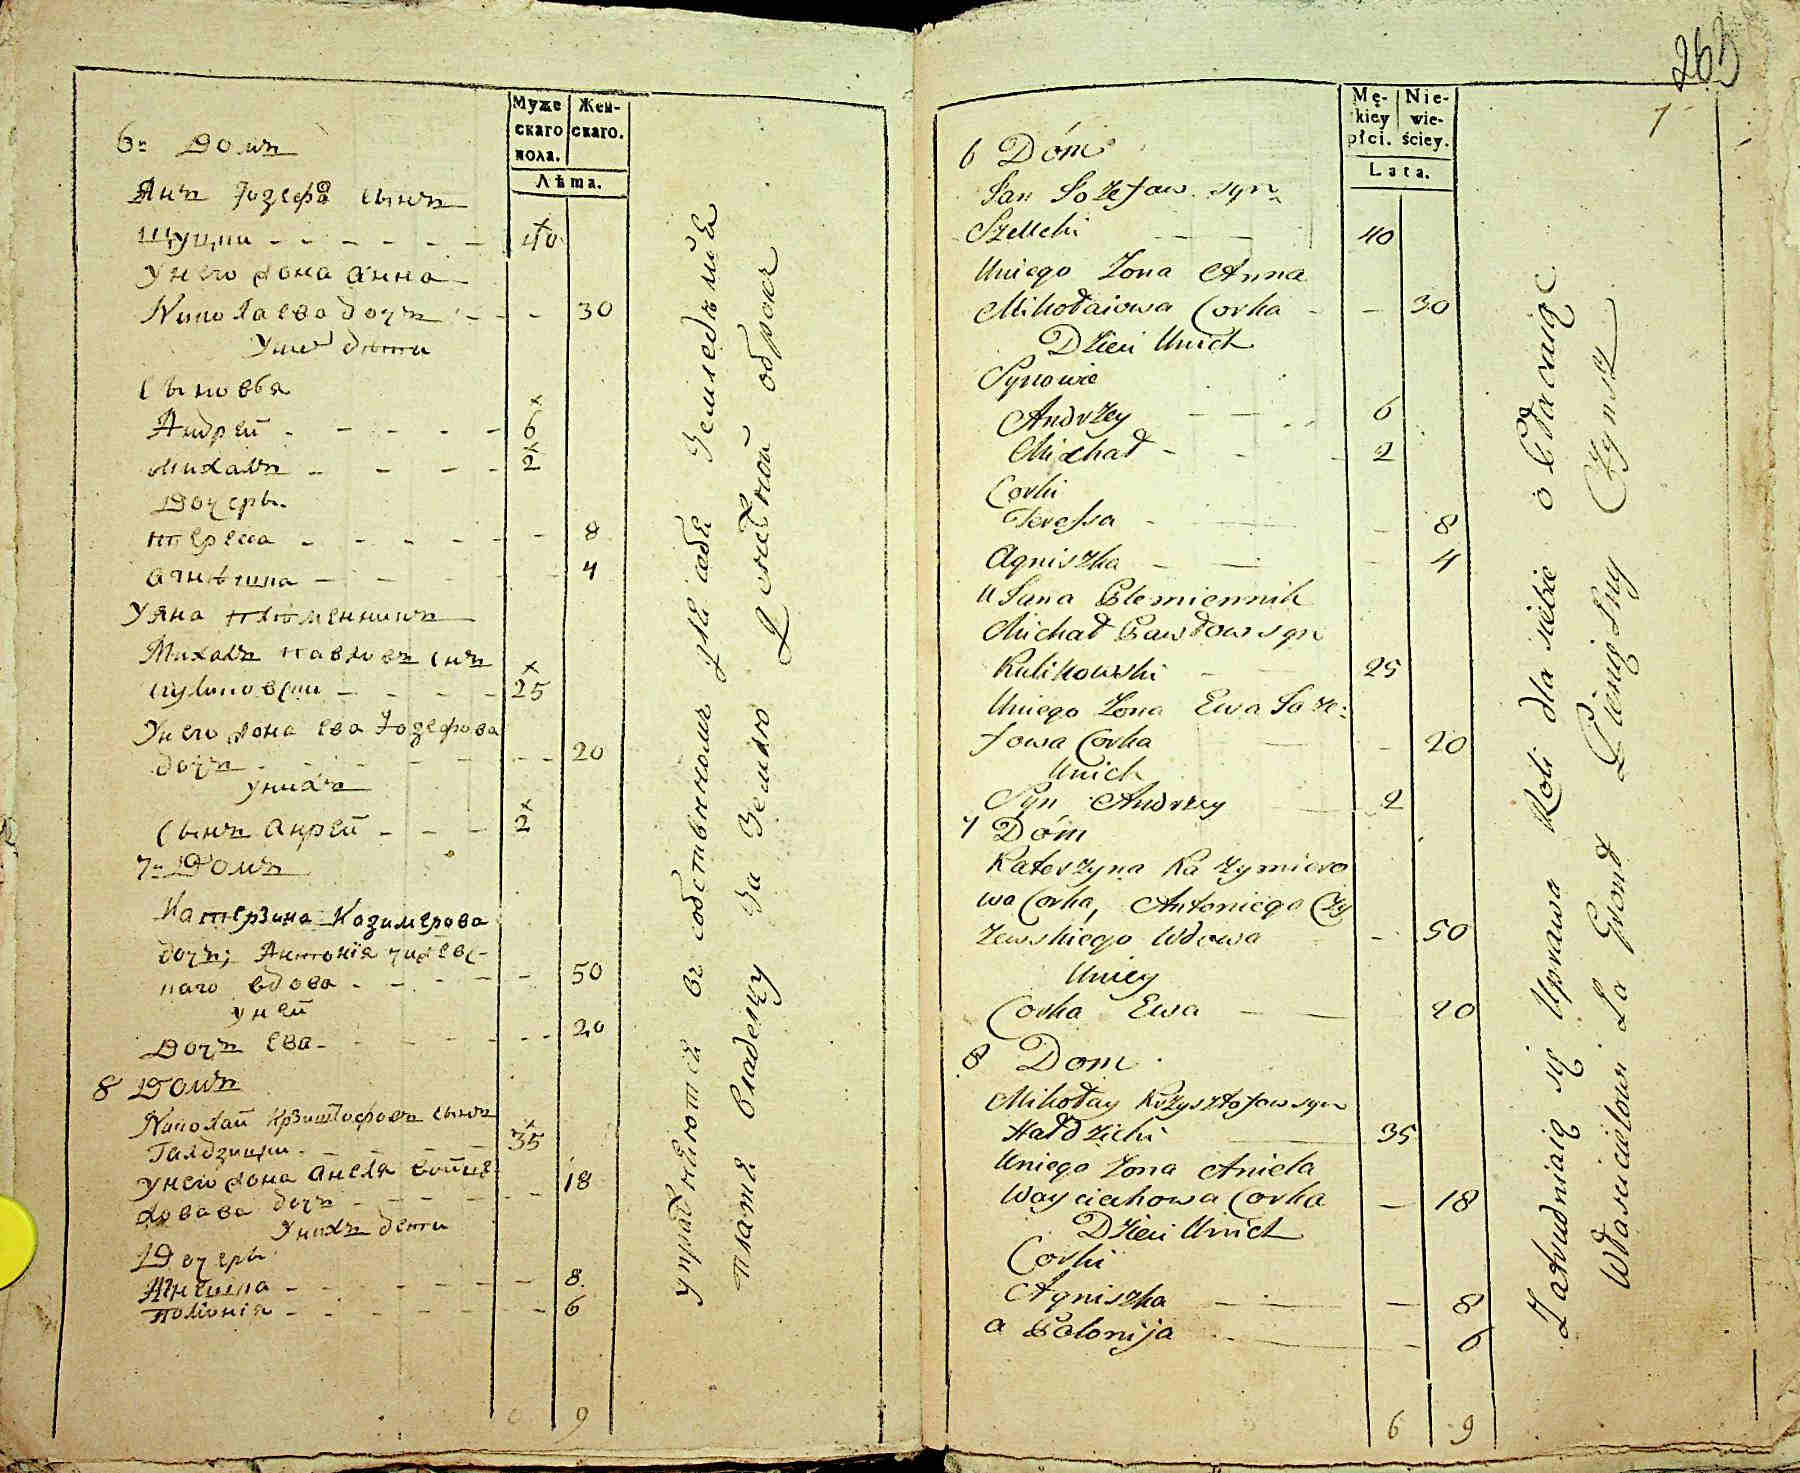 Муже
скаго
пола.
Жен-
скаго.
Лѣта.
6: Домъ
Янъ Іозефа сынъ
Щуцки - - - - - 40
У него жона Анна
Николаева дочъ - - - 30
У них дѣти
Сыновья
Андрей - - - - - 6
Михалъ - - - - 2
Дочеры
Тереса - - - - - 8
Агнѣшка - - - - 4
У Яна племенникъ
Михалъ Павловъ сынъ
Куликовски - - - - 25
У него жона Ева Іозефова
дочъ - - - - - 20
у нихъ
Сынъ Анрей - - - 2
7: Домъ
Катерзина Казимерова
дочъ; Антонія чижевс-
каго вдова - - - - 50
у ней
Дочъ Ева - - - - - 20
8 Домъ
Николай Крзиштофовъ сынъ
Галдзицки - - - - - 35
У него жона Анеля Войце-
ховава дочъ - - - - - 18
У нихъ дети
Дочеры
Агнешка - - - - - 8.
Полонія - - - - - 6
9
упражняются въ собственномъ для себя земледѣліи
платя владельцу за землю денежной оброкъ
263
1
Mę-
kiey
płci.
Nie-
wie-
ściey.
Lata.
6 Dóm
Jan Jozefow syn
Szellchi - - 40
Uniego Zona Anna
Mikołaiowa Corka - - 30
Dzieci Unich
Synowie
Andrzey - - 6
Michał - - - 2
Corki
Teressa - - - 8
Agniszka - - - 4
u Jana Plemiennik
Michał Pawłow syn
Kulikowski - - 25
Uniego Zona Ewa Joze:
fowa Corka - - 20
Unich
Syn Andrzey - - 2
7 Dóm
Katerzyna Kazymiero
wa Corka, Antoniego Czy
zewskiego Wdowa - 50
Uniey
Corka Ewa - - 20
8 Dom
Mikołay Krzysztofow syn
Hałdzicki - 35
Uniego Zona Aniela
Woyciehowa Corka - 18
Dzieci Unich
Corki
Agniszka - - - 8
a Polonija - - - 6
6 9
Zatrudniaią się Uprawa Roli dla siebie opłacaiąc
Właścicielowi Za Grunt Pieniężny Czynsz